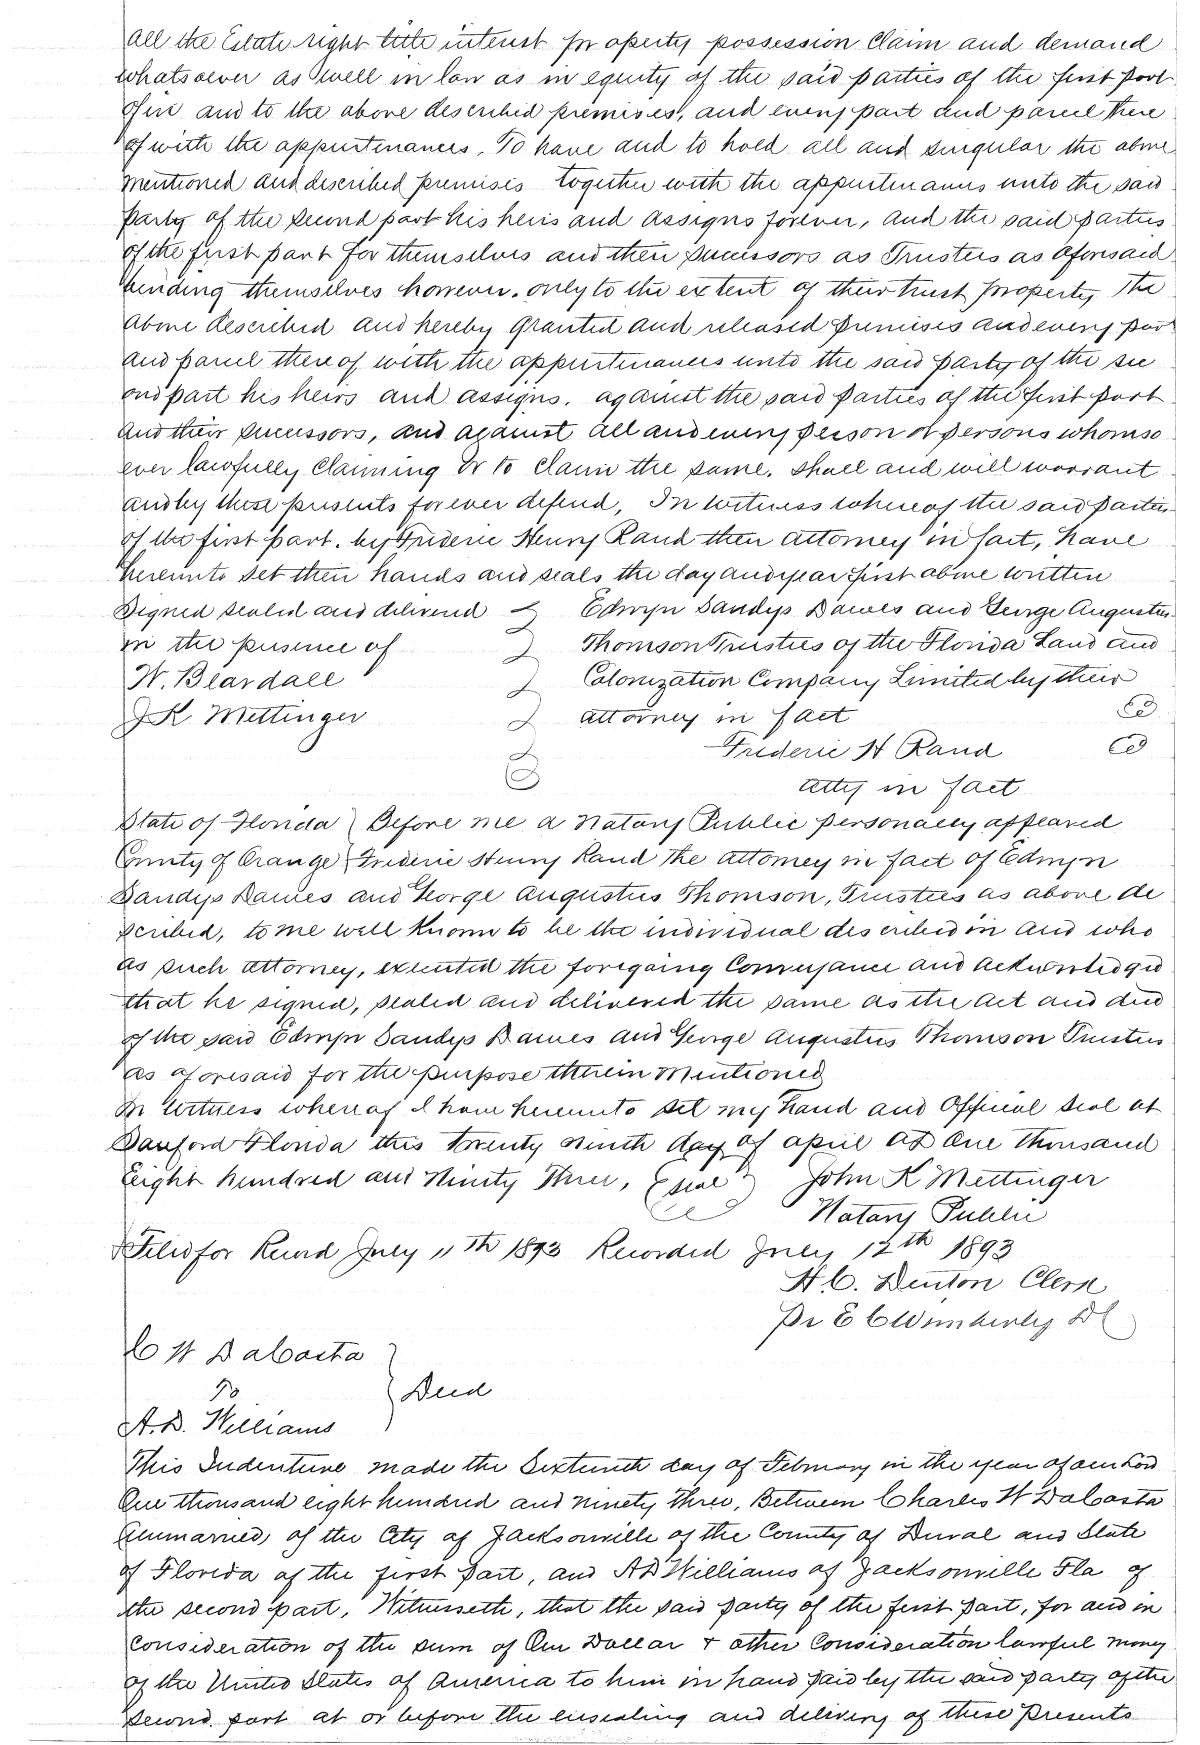 all the Estate right title interest property possession Claim and demand
whatsoever as well in law as in equity of the said parties of the first part
of in and to the above described premises, and every part and parcel there
of with the appurtenances. To have and to hold all and singular the above
mentioned and described premises together with the appurtenances unto the said
party of the second part his heirs and assigns forever, and the said parties
of the first part for themselves and their successors as Trustees as aforesaid
binding themselves however. only to the extent of their trust property The
above described and hereby granted and released premises and every part
and parcel there of with the appurtenances unto the said party of the sec
ond part his heirs and assigns. against the said parties of the first part
and their successors, and against all and every person or persons whomso
ever lawfully Claiming or to Claim the same. shall and will warrant
and by these presents forever defend, In Witness whereof the said parties
of the first part. by Frideric Henry Rand their attorney in fact, have
hereunto set their hands and seals the day and year first above written
Signed sealed and delivered Edwyn Sandys Dawes and George Augustus
in the presence of Thomson Trustees of the Florida Land and
W. Beardall Colonization Company Limited by their
J K Mettinger attorney in fact
Frederic H Rand
atty in fact
State of Florida Before me a Notary Public personally appeared
County of Orange Frederic Henry Rand the attorney in fact of Edwyn
Sandys Dawes and George Augustus Thomson, Trustees as above de
scribed, to me well known to be the individual described in and who
as such attorney, executed the foregoing Conveyance and acknowledged
that he signed, sealed and delivered the same as the act and deed
of the said Edwyn Sandys Dawes and George Augustus Thomson Trustees
as aforesaid for the purpose therein mentioned
In Witness whereof I have hereunto set my hand and Official seal at
Sanford Florida this twenty ninth day of april AD One thousand
Eight hundred and Ninety Three, (seal) John K Mettinger
Notary Public
Filed for Record July 11th 1893 Recorded July 12th 1893
H. C. Denton Clerk
Pr E C Wimberly DC
C W DaCosta
To } Deed
A. D. Williams
This Indenture made the Sixteenth day of February in the year of our Lord
One thousand eight hundred and ninety three, Between Charles W DaCosta
(unmarried) of the City of Jacksonville of the County of Duval and State
of Florida of the first part, and A D Williams of Jacksonville Fla of
the second part, Witnesseth, that the said party of the first part, for and in
Consideration of the sum of One Dollar & other Consideration lawful money
of the United States of America to him in hand paid by the said party of the
second part at or before the ensealing and delivery of these presents